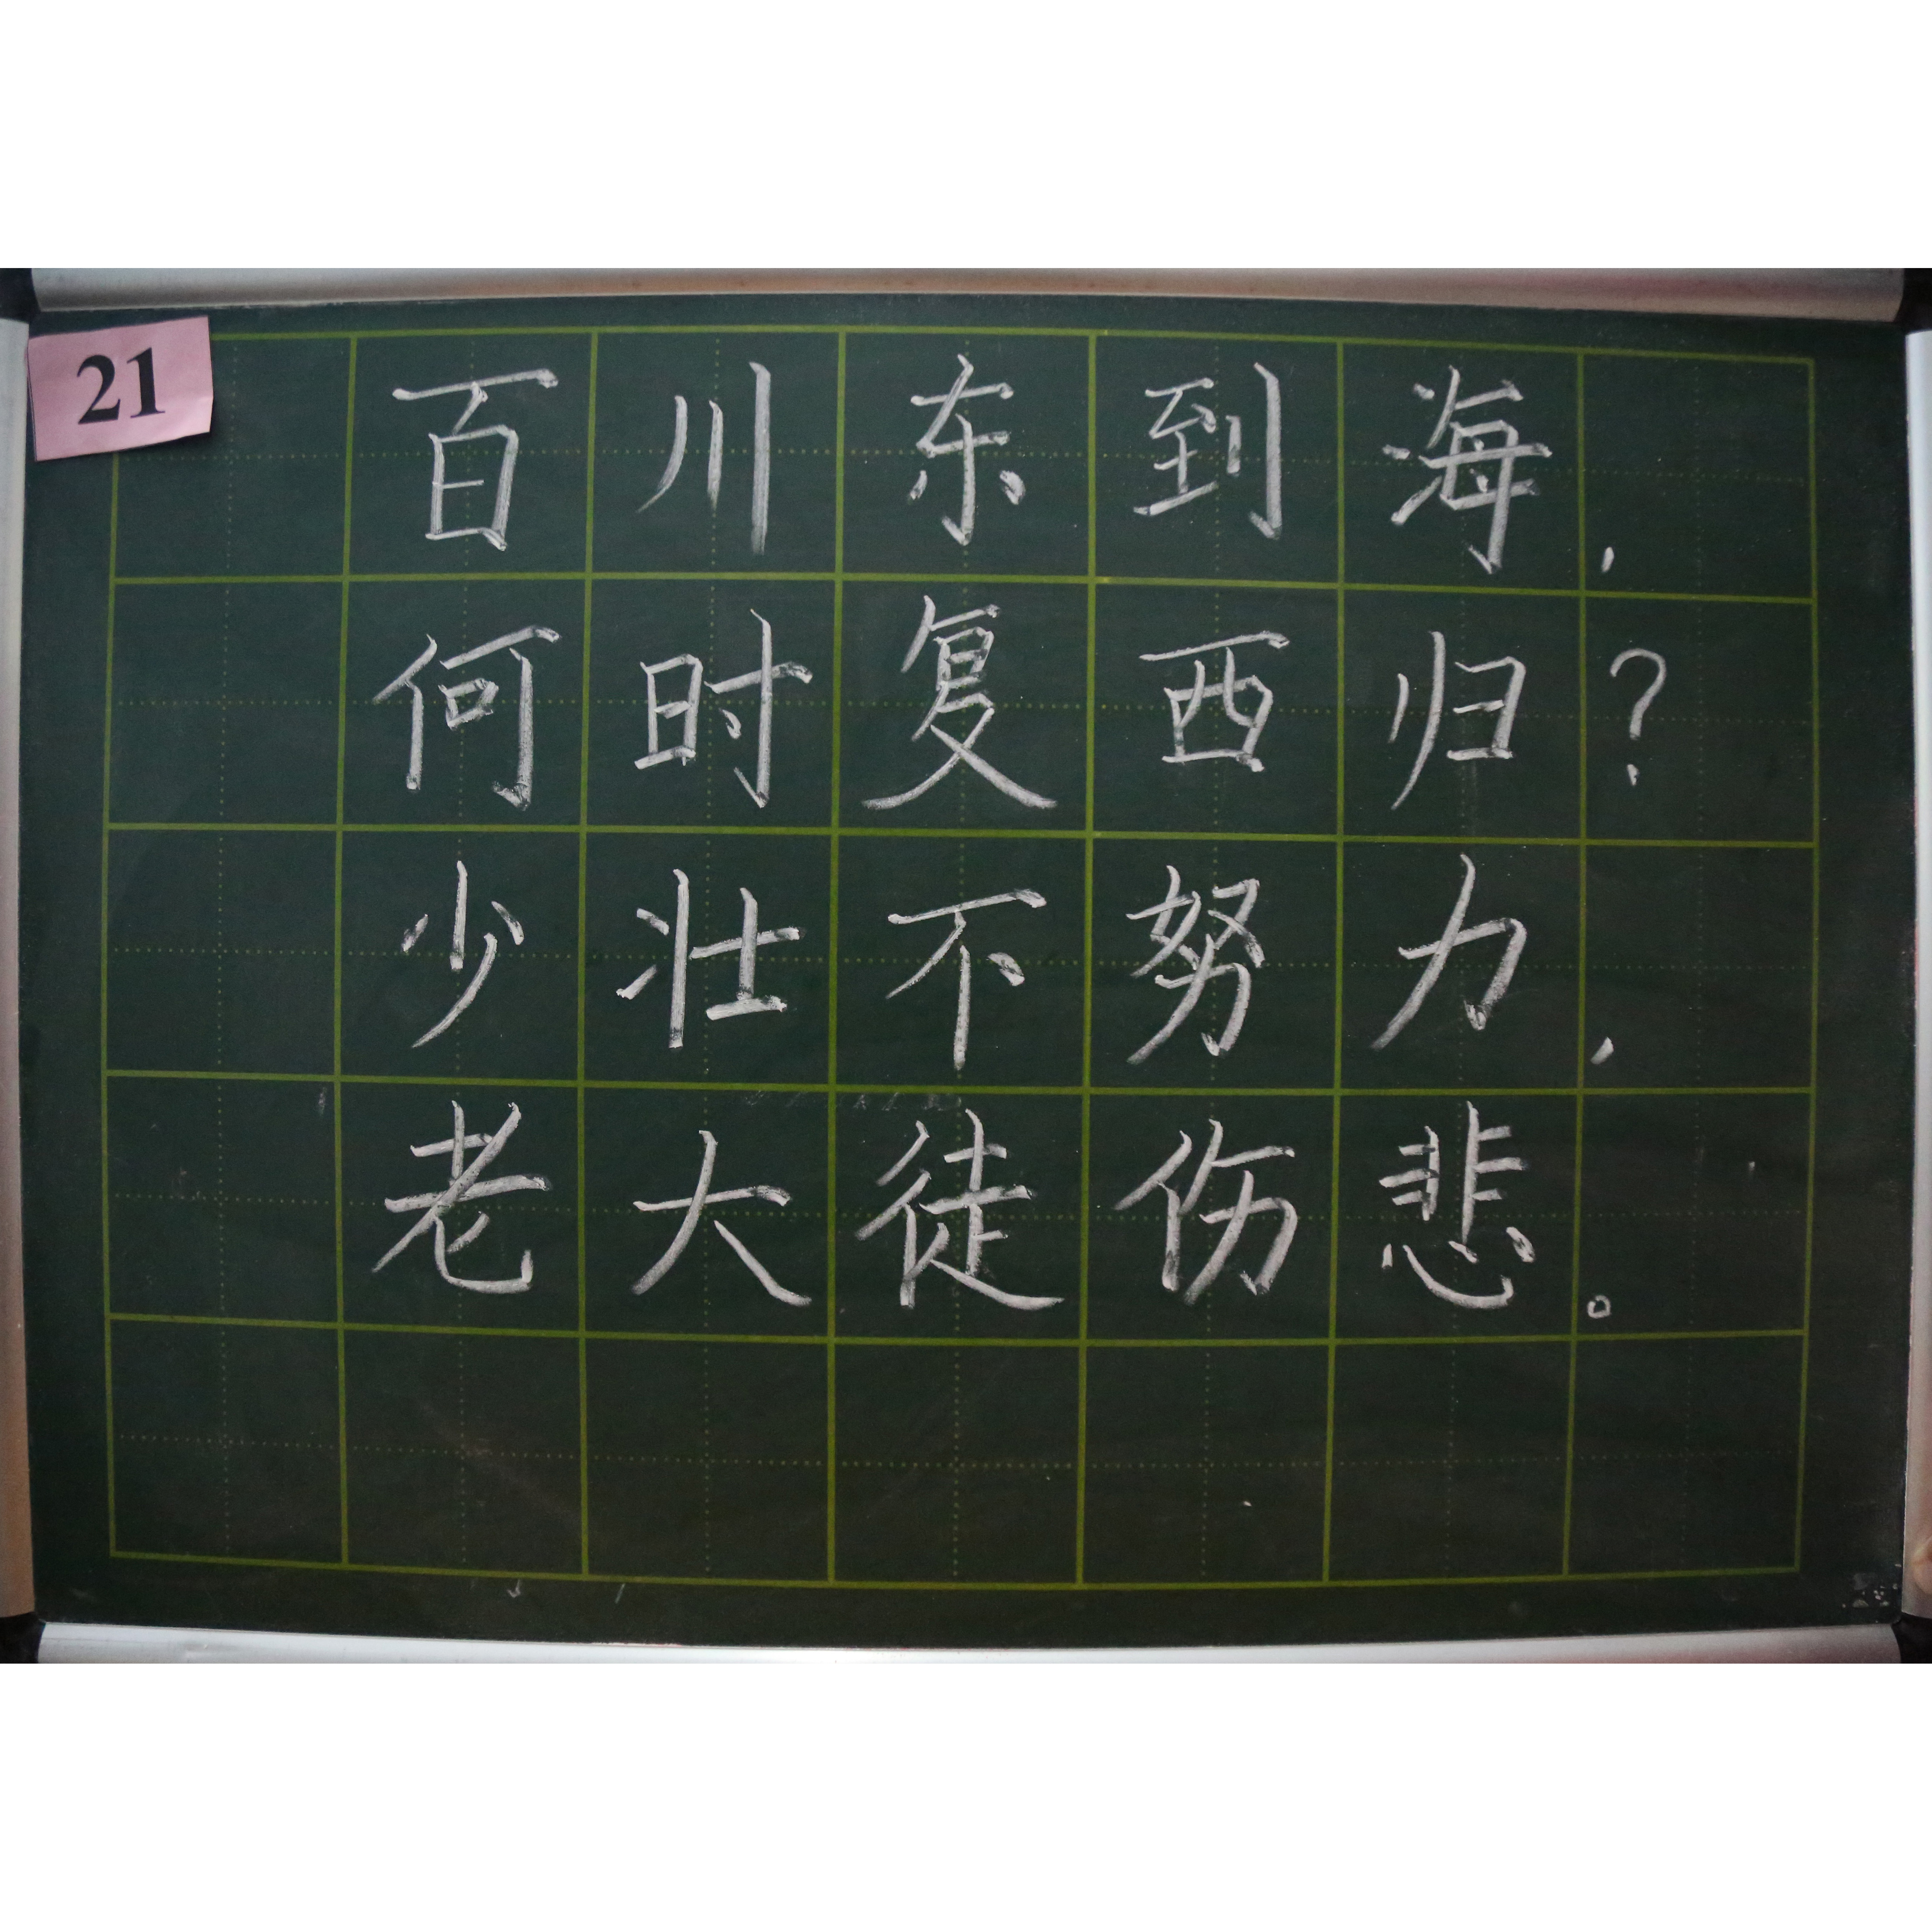 21
百川东到海，
何时复西归？
少壮不努力，
老大徒伤悲。